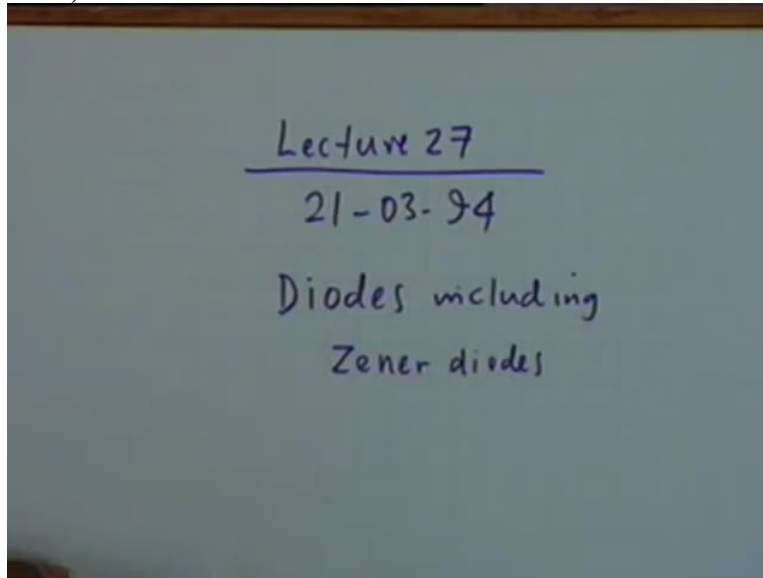 Lecture 27
21-03-94
Diodes including
Zener diodes